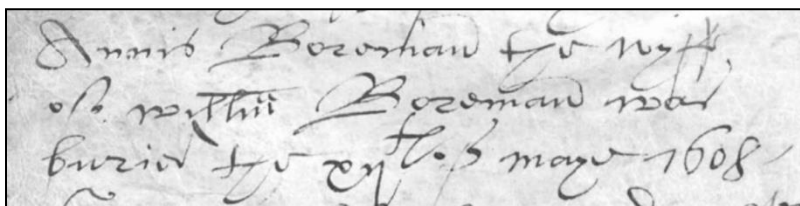 Annis Boreman the wyff
off Wyllm̄ Boreman was
buried the xijth off maye 1608